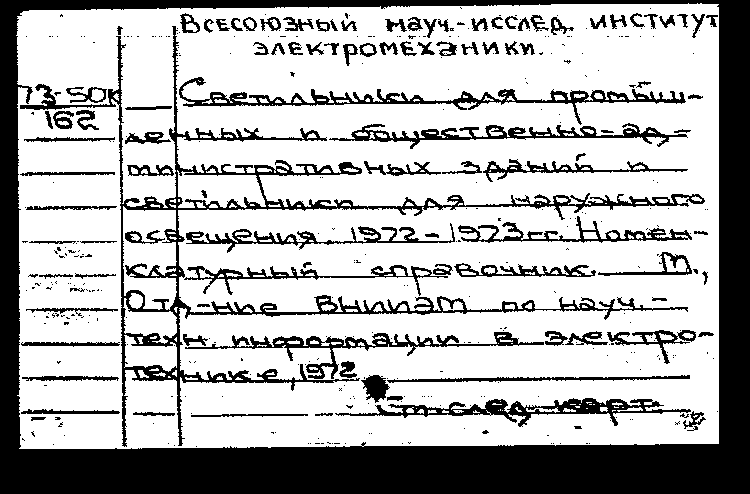 Всесоюзный науч.-исслед. институт
электромеханики.
73-50К
162
Светильники для промыш-
ленных и общественно-ад-
министративных зданий и
светильники для наружного
освещения. 1972-1973гг. Номен-
клатурный справочник. М.,
Отд-ние ВНИИЭМ по науч.-
техн. информации в электро-
технике, 1972
См. след. карт.